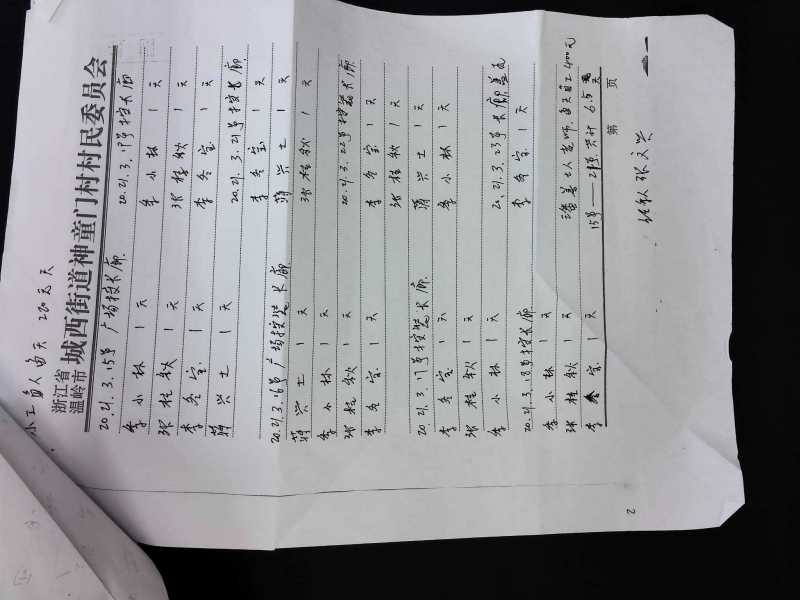 小工每人每天 220元天
浙江省
温岭市
城西街道神童门村村民委员会
2021.3.15号 广场按长廊
李小林 1天
张桂钦 1天
李冬宝 1天
蒋兴土 1天
2021.3.16号广场按装长廊
蒋兴土 1天
李小林 1天
张桂钦 1天
李冬宝 1天
2021.3.17号按装长廊
李冬宝 1天
张桂钦 1天
李小林 1天
2021.3.18号按长廊
李小林 1天
张桂钦 1天
李冬宝 1天
2021.3.19号按长廊
李小林 1天
张桂钦 1天
李冬宝 1天
2021.3.21号按长廊
李冬宝 1天
蒋兴土 1天
张桂钦 1天
2021.3.22号按装长廊
李冬宝 1天
张桂钦 1天
蒋兴土 1天
李小林 1天
2021.3.23号长廊盖瓦
李冬宝 1天
老师,每天自工400元
15号——21号,共计6.5天
第 页
张文兴
2